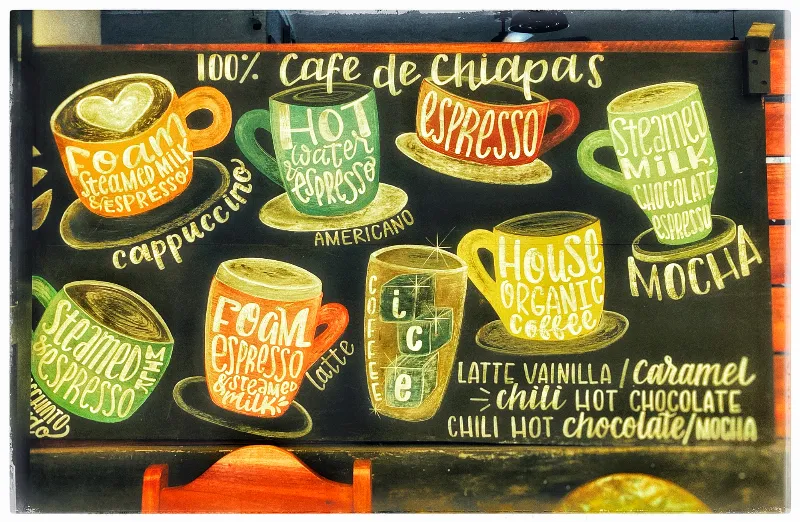 100% Cafe de Chiapas
FOAM
STEAMED MILK
& ESPRESSO
cappuccino
HOT
water
& ESPRESSO
AMERICANO
ESPRESSO
STEAMED
MILK
CHOCOLATE
ESPRESSO
MOCHA
STEAMED
& ESPRESSO
FOAM
ESPRESSO
& STEAMED
milk
latte
COFFEE
ice
HOUSE
ORGANIC
coffee
LATTE VAINILLA / Caramel
chili HOT CHOCOLATE
CHILI HOT chocolate/MOCHA